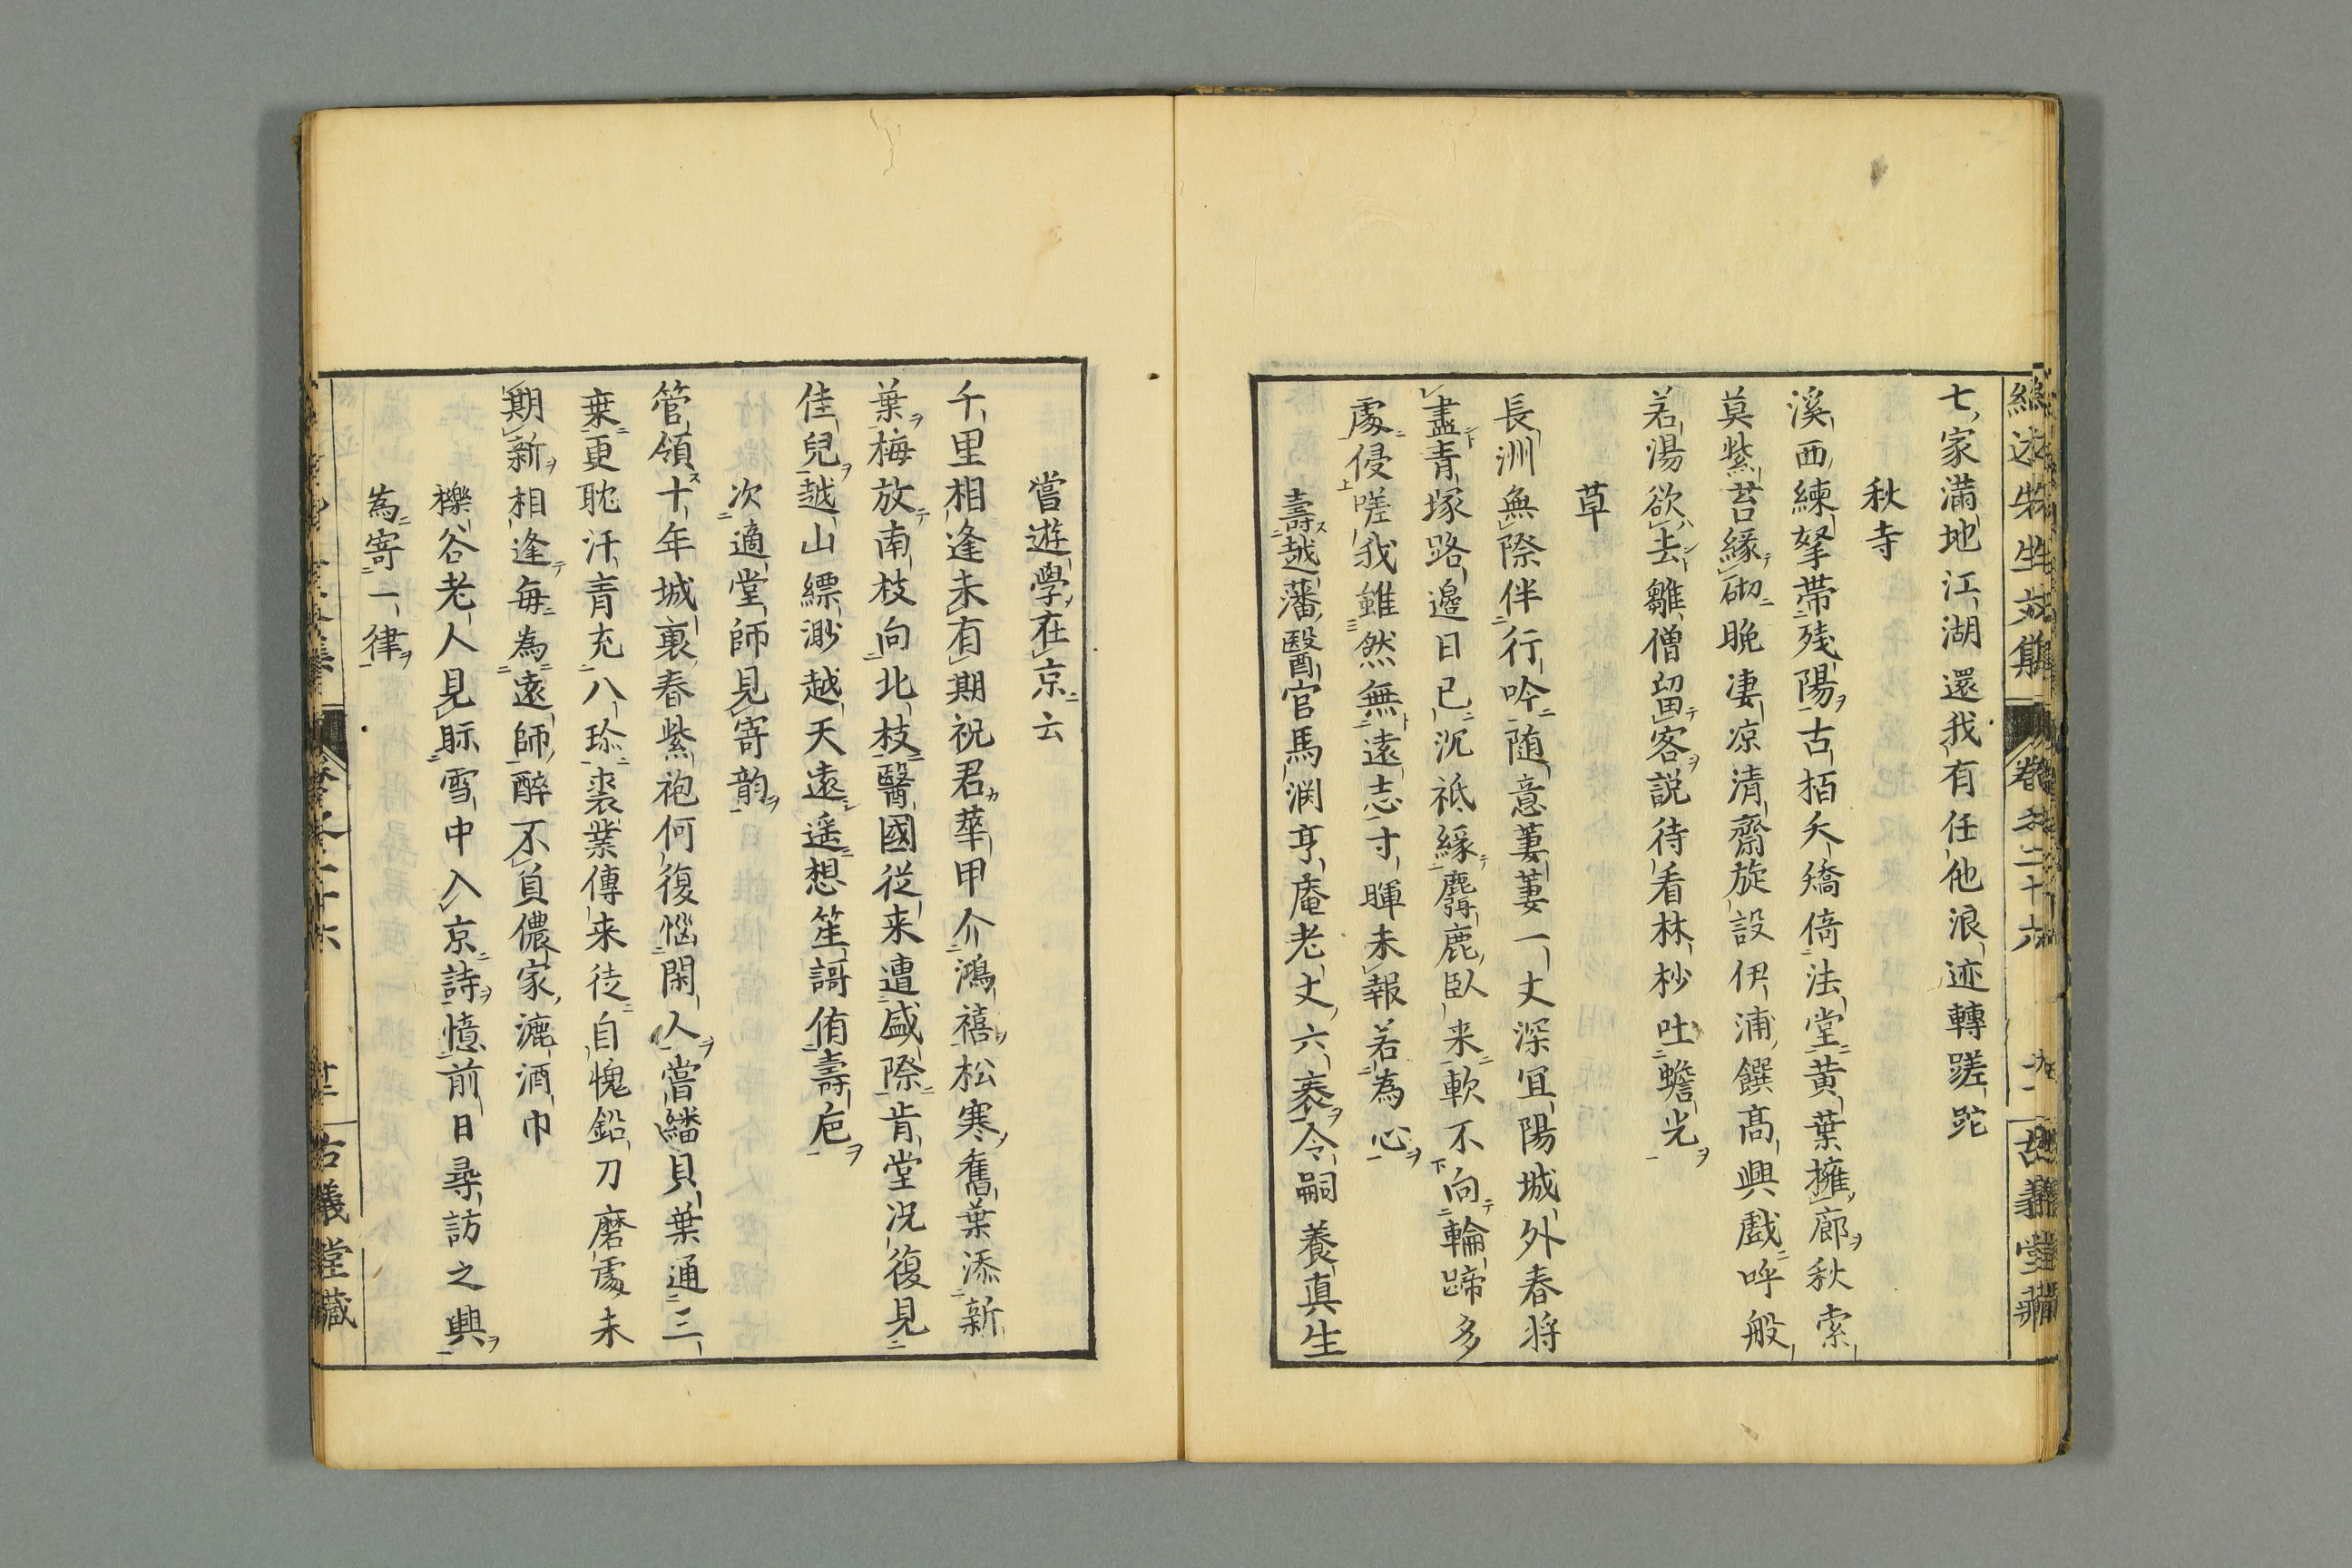 七家滿地江湖還我有任他浪迹轉蹉跎
秋寺
溪西練拏帶殘陽古栢夭矯倚法堂黄葉擁廊秋索
莫紫苔緣砌晩凄凉清齋旋設伊蒲饌髙興戱呼般
若湯欲去雛僧留客説待看林杪吐蟾光
草
長洲無際伴行吟随意萋萋一丈深冝陽城外春将
盡青塚路邉日已沉祇緣麛鹿臥来軟不向輪蹄多
處侵嗟我雖然無遠志寸暉未報若為心
壽越藩醫官馬渕亨庵老丈六袠令嗣養真生
嘗遊學在京云
千里相逢未有期祝君華甲介鴻禧松寒舊葉添新
葉梅放南枝向北枝醫國從来遭盛際肯堂况復見
佳兒越山縹渺越天遠遥想笙謌侑壽巵
次適堂師見寄韵
管領十年城裏春紫袍何復惱閑人嘗繙貝葉通三
乗更耽汗青充八珎裘業傳来徒自愧鉛刀磨處未
期新相逢毎為遠師醉不負儂家漉酒巾
櫟谷老人見眎雪中入京詩憶前日尋訪之興
為寄一律
卷之二十六
古義堂藏